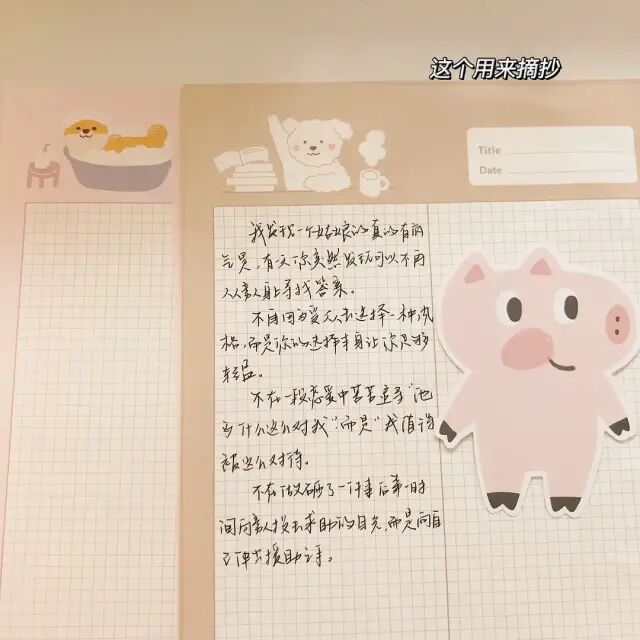 这个用来摘抄
Title
Date
我发现一个姑娘的真的有两
气是，有天你突然发现可以不再
从人身上寻找答案。
不再因为爱人去选择一种风
格，而是你的选择本身让你足够
轻盈。
不在一段恋爱中苦苦追寻“他
为什么这么对我”而是“我值得
被这么对待。
不在做砸了一件事后第一时
间向人投去求助的目光，而是向自
己伸出援助之手。